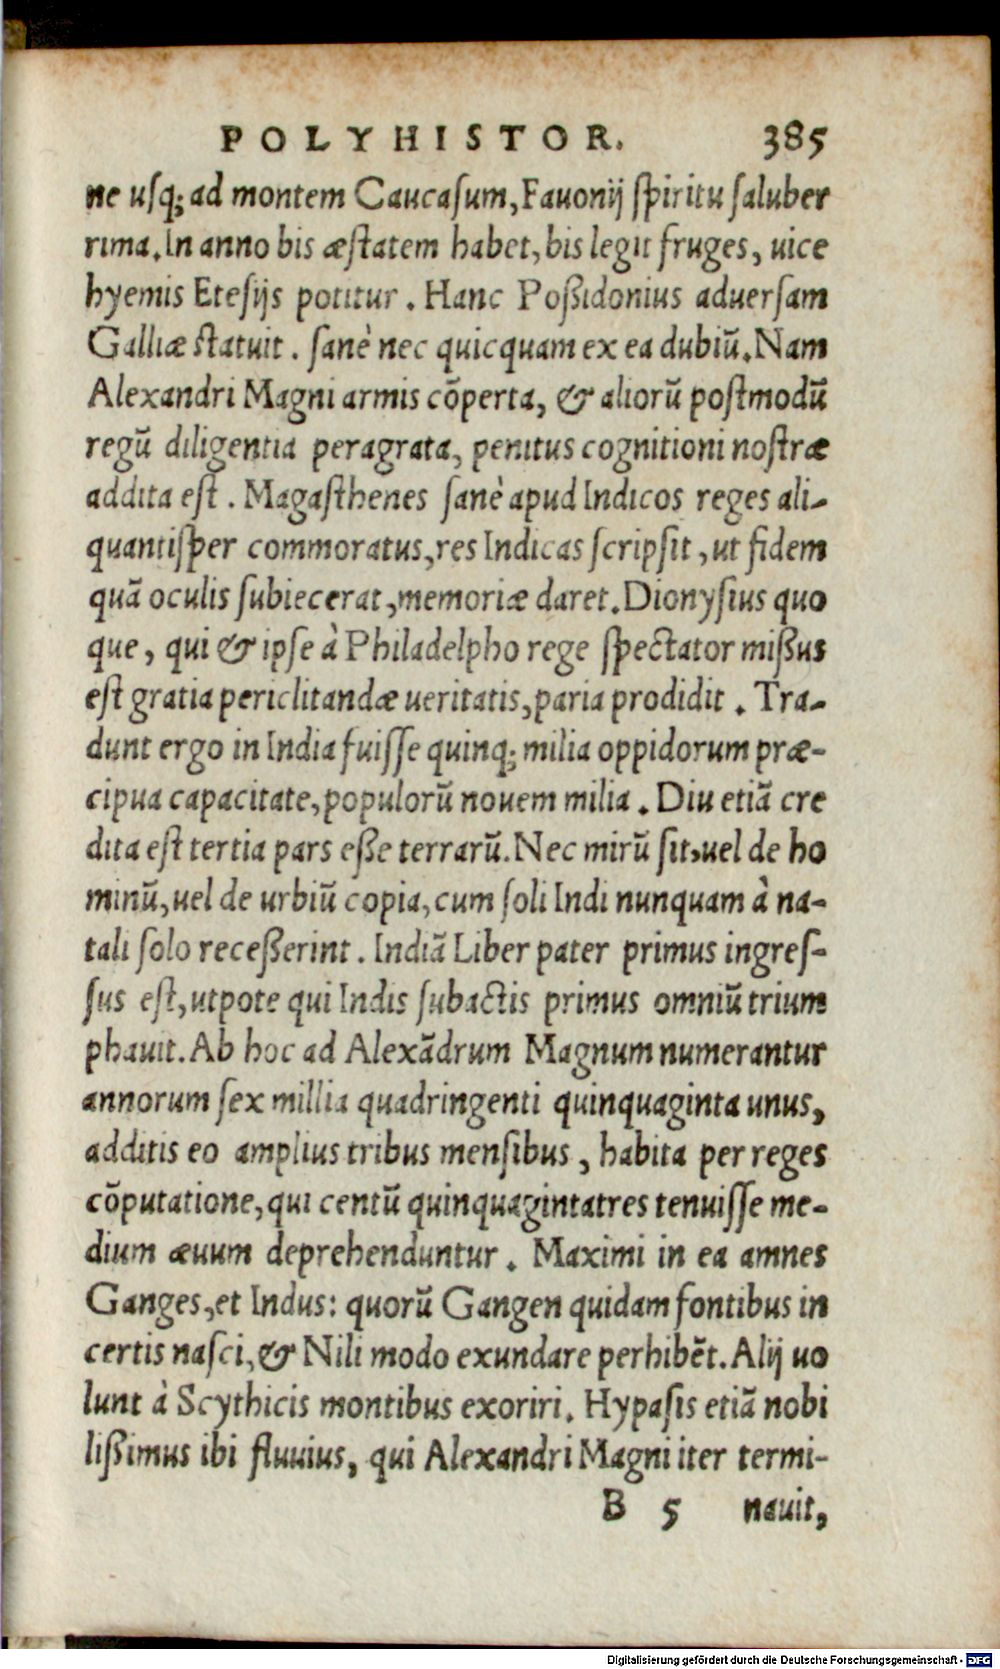 POLYHISTOR. 385
ne usq; ad montem Caucasum, Fauonij spiritu saluber
rima. In anno bis æstatem habet, bis legit fruges, uice
hyemis Etesijs potitur. Hanc Poßidonius aduersam
Galliæ statuit. sanè nec quicquam ex ea dubiũ. Nam
Alexandri Magni armis cõperta, & aliorũ postmodũ
regũ diligentia peragrata, penitus cognitioni nostræ
addita est. Magasthenes sanè apud Indicos reges ali-
quantisper commoratus, res Indicas scripsit, ut fidem
quã oculis subiecerat, memoriæ daret. Dionysius quo
que, qui & ipse à Philadelpho rege spectator mißus
est gratia periclitandæ ueritatis, paria prodidit. Tra-
dunt ergo in India fuisse quinq; milia oppidorum præ-
cipua capacitate, populorũ nouem milia. Diu etiã cre
dita est tertia pars eße terrarũ. Nec mirũ sit, uel de ho
minũ, uel de urbiũ copia, cum soli Indi nunquam à na-
tali solo receßerint. Indiã Liber pater primus ingres-
sus est, utpote qui Indis subactis primus omniũ trium
phauit. Ab hoc ad Alexãdrum Magnum numerantur
annorum sex millia quadringenti quinquaginta unus,
additis eo amplius tribus mensibus, habita per reges
cõputatione, qui centũ quinquagintatres tenuisse me-
dium æuum deprehenduntur. Maximi in ea amnes
Ganges, et Indus: quorũ Gangen quidam fontibus in
certis nasci, & Nili modo exundare perhibẽt. Alij uo
lunt à Scythicis montibus exoriri. Hypasis etiã nobi
lißimus ibi fluuius, qui Alexandri Magni iter termi-
B 5 nauit,
Digitalisierung gefördert durch die Deutsche Forschungsgemeinschaft - DFG